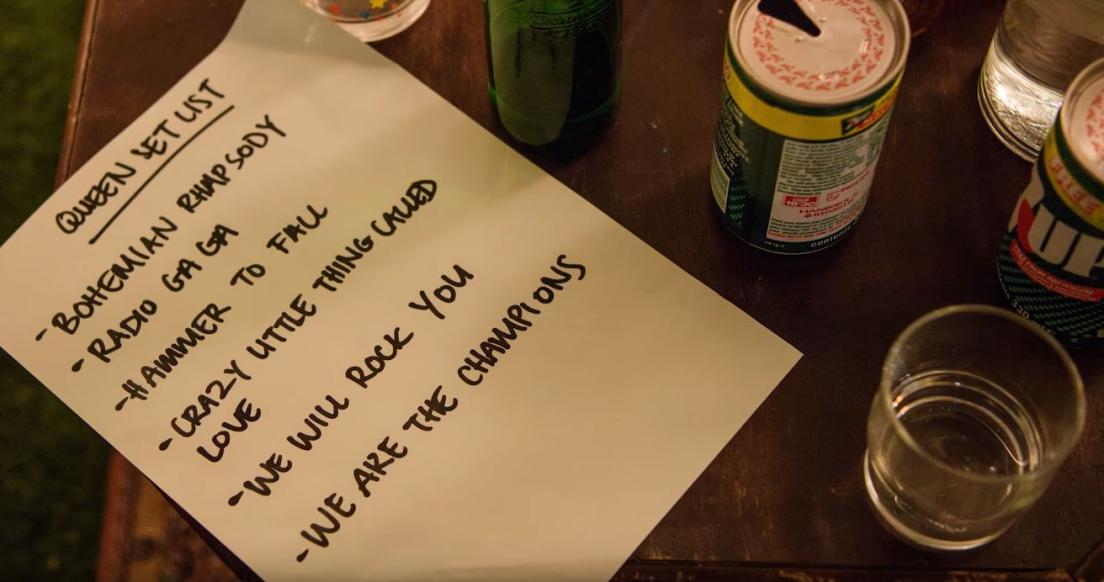 QUEEN SET LIST
- BOHEMIAN RHAPSODY
- RADIO GA GA
- HAMMER TO FALL
- CRAZY LITTLE THING CALLED
LOVE
- WE WILL ROCK YOU
- WE ARE THE CHAMPIONS
contents